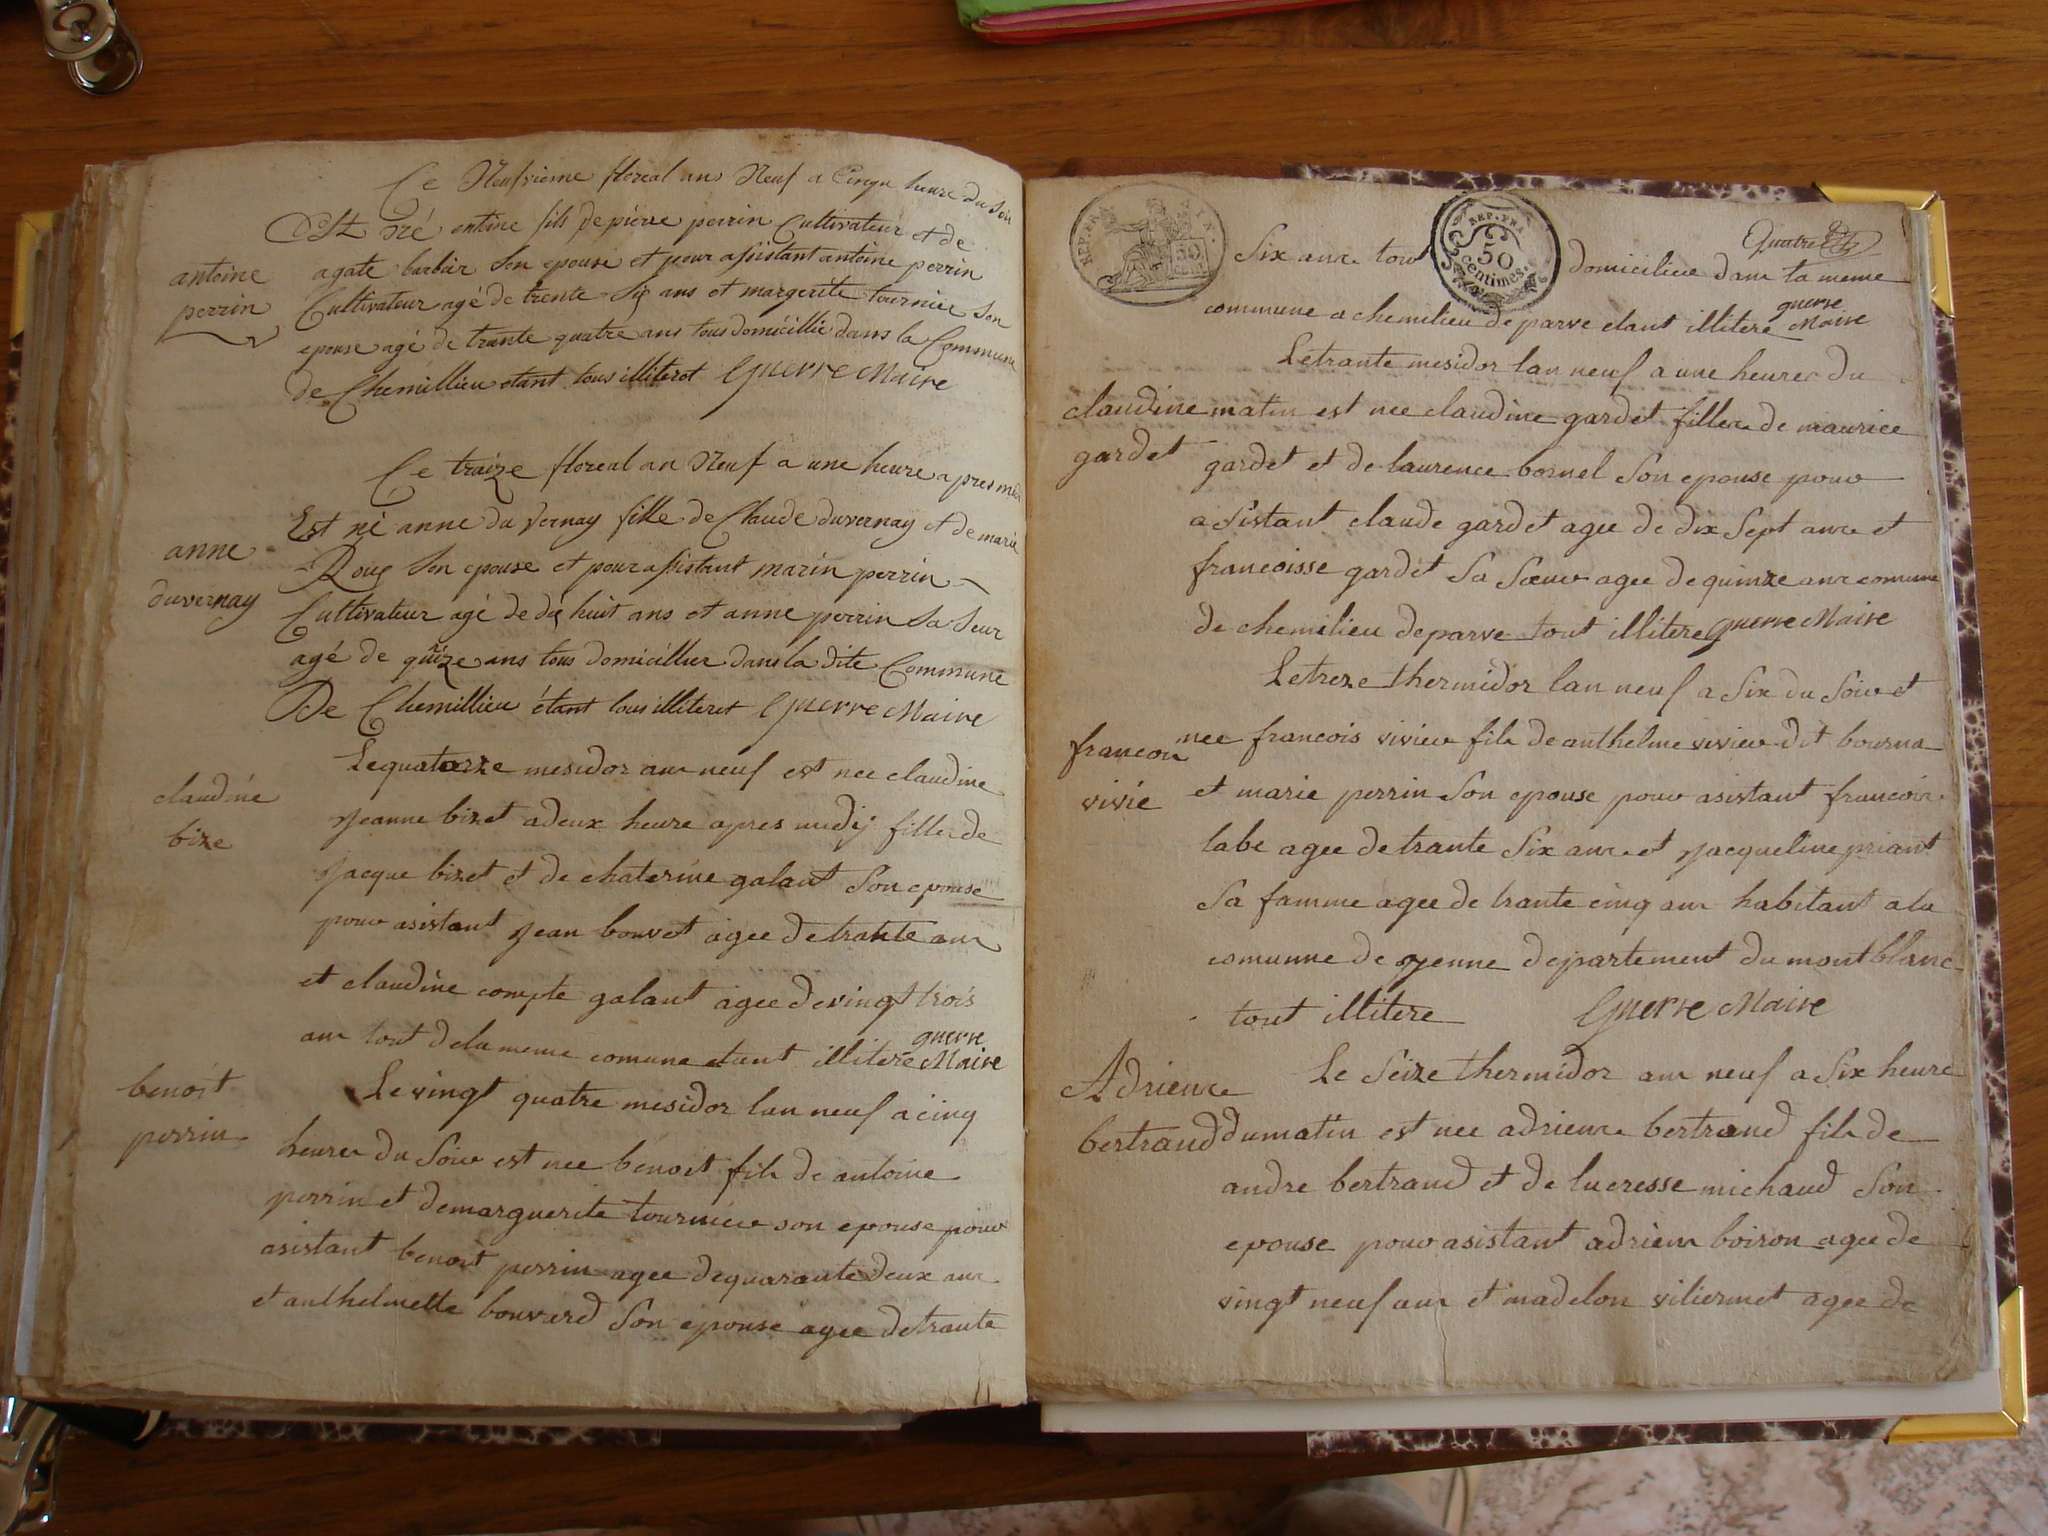 Ce Neufvieme floreal an Neuf a Cinqu heure du soir
Est né entoine fils de piérre perrin Cultivateur et de
antoine
perrin
agate barbier son epouse et pour assistant antoine perrin
Cultivateur agé de trente Six ans et margerite tournier son
epouse agé de trante quatre ans tous domicillié dans la Commune
de Chemillieu etant tous illiteret Guerre Maire
Ce traize floreal an Neuf a une heure apres midi
Est né anne du vernay fille de Claude duvernay et de marie
anne
duvernay
Roux son epouse et pour assistant marin perrin
Cultivateur agé de dix huit ans et anne perrin Sa Seur
agé de quize ans tous domicillier dans la dite Commune
De Chemillieu étant tous illiteret Guerre Maire
Le quatorze mesidor an neuf est nee claudine
claudine
bize
jeanne bizet a deux heure apres midij fille de
jacque bizet et de chaterine galant son epouse
pour asistant jean bouvet agee de trante ans
et claudine compte galant agee de vingt trois
ans tout de la meme comune etant illitere guerre Maire
benoit
perrin
Le vingt quatre mesidor lan neuf a cinq
heures du soir est nee benoit fils de antoine
perrin et de marguerite tournier son epouse pour
asistant benoit perrin agee de quarante deux ans
et anthelmette bouvard son epouse agee de trante
REP. FRA.
50
centimes.
Quatre
Six ans tous domicilies dans la meme
commune a chemilieu de parve etant illitere guerre Maire
Le trante mesidor lan neuf a une heures du
claudine
gardet
matin est nee claudine gardet filles de maurice
gardet et de laurence bornel son epouse pour
asistant claude gardet agee de dix sept ans et
francoisse gardet sa soeur agee de quinze ans comune
de chemilieu de parve tout illitere Guerre Maire
Le treze thermidor lan neuf a six du soir et
francois
vivié
nee francois vivier fils de anthelme vivier dit bourna
et marie perrin son epouse pour asistant francois
labe agee de trante six ans et jacqueline priant
sa famme agee de trante cinq ans habitant a la
comunne de yenne departement du mont blanc
tout illitere Guerre Maire
Adriene
bertrand
Le Seize thermidor an neuf a Six heure
du matin est nee adriens bertrand fils de
andre bertrand et de lucresse michaud son
epouse pour asistant adrien boiron agee de
vingt neuf ans et madelon viliermet agee de